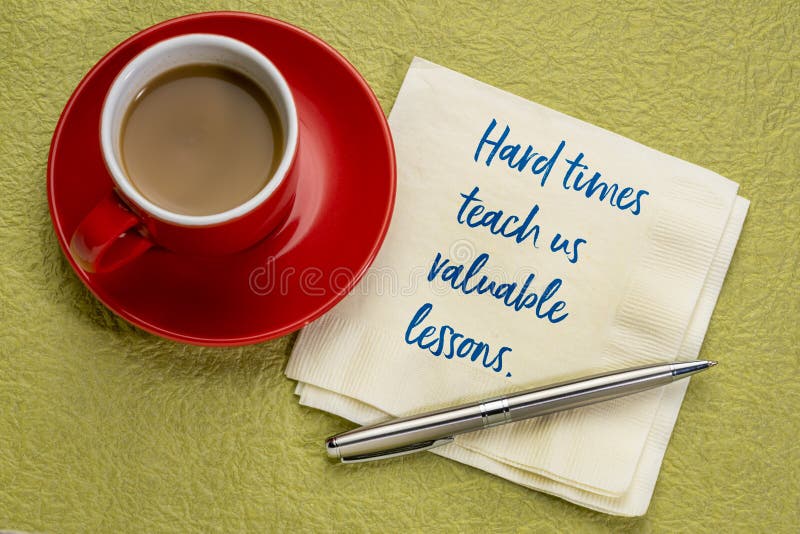 Hard times
teach us
valuable
lessons.
dreamstime